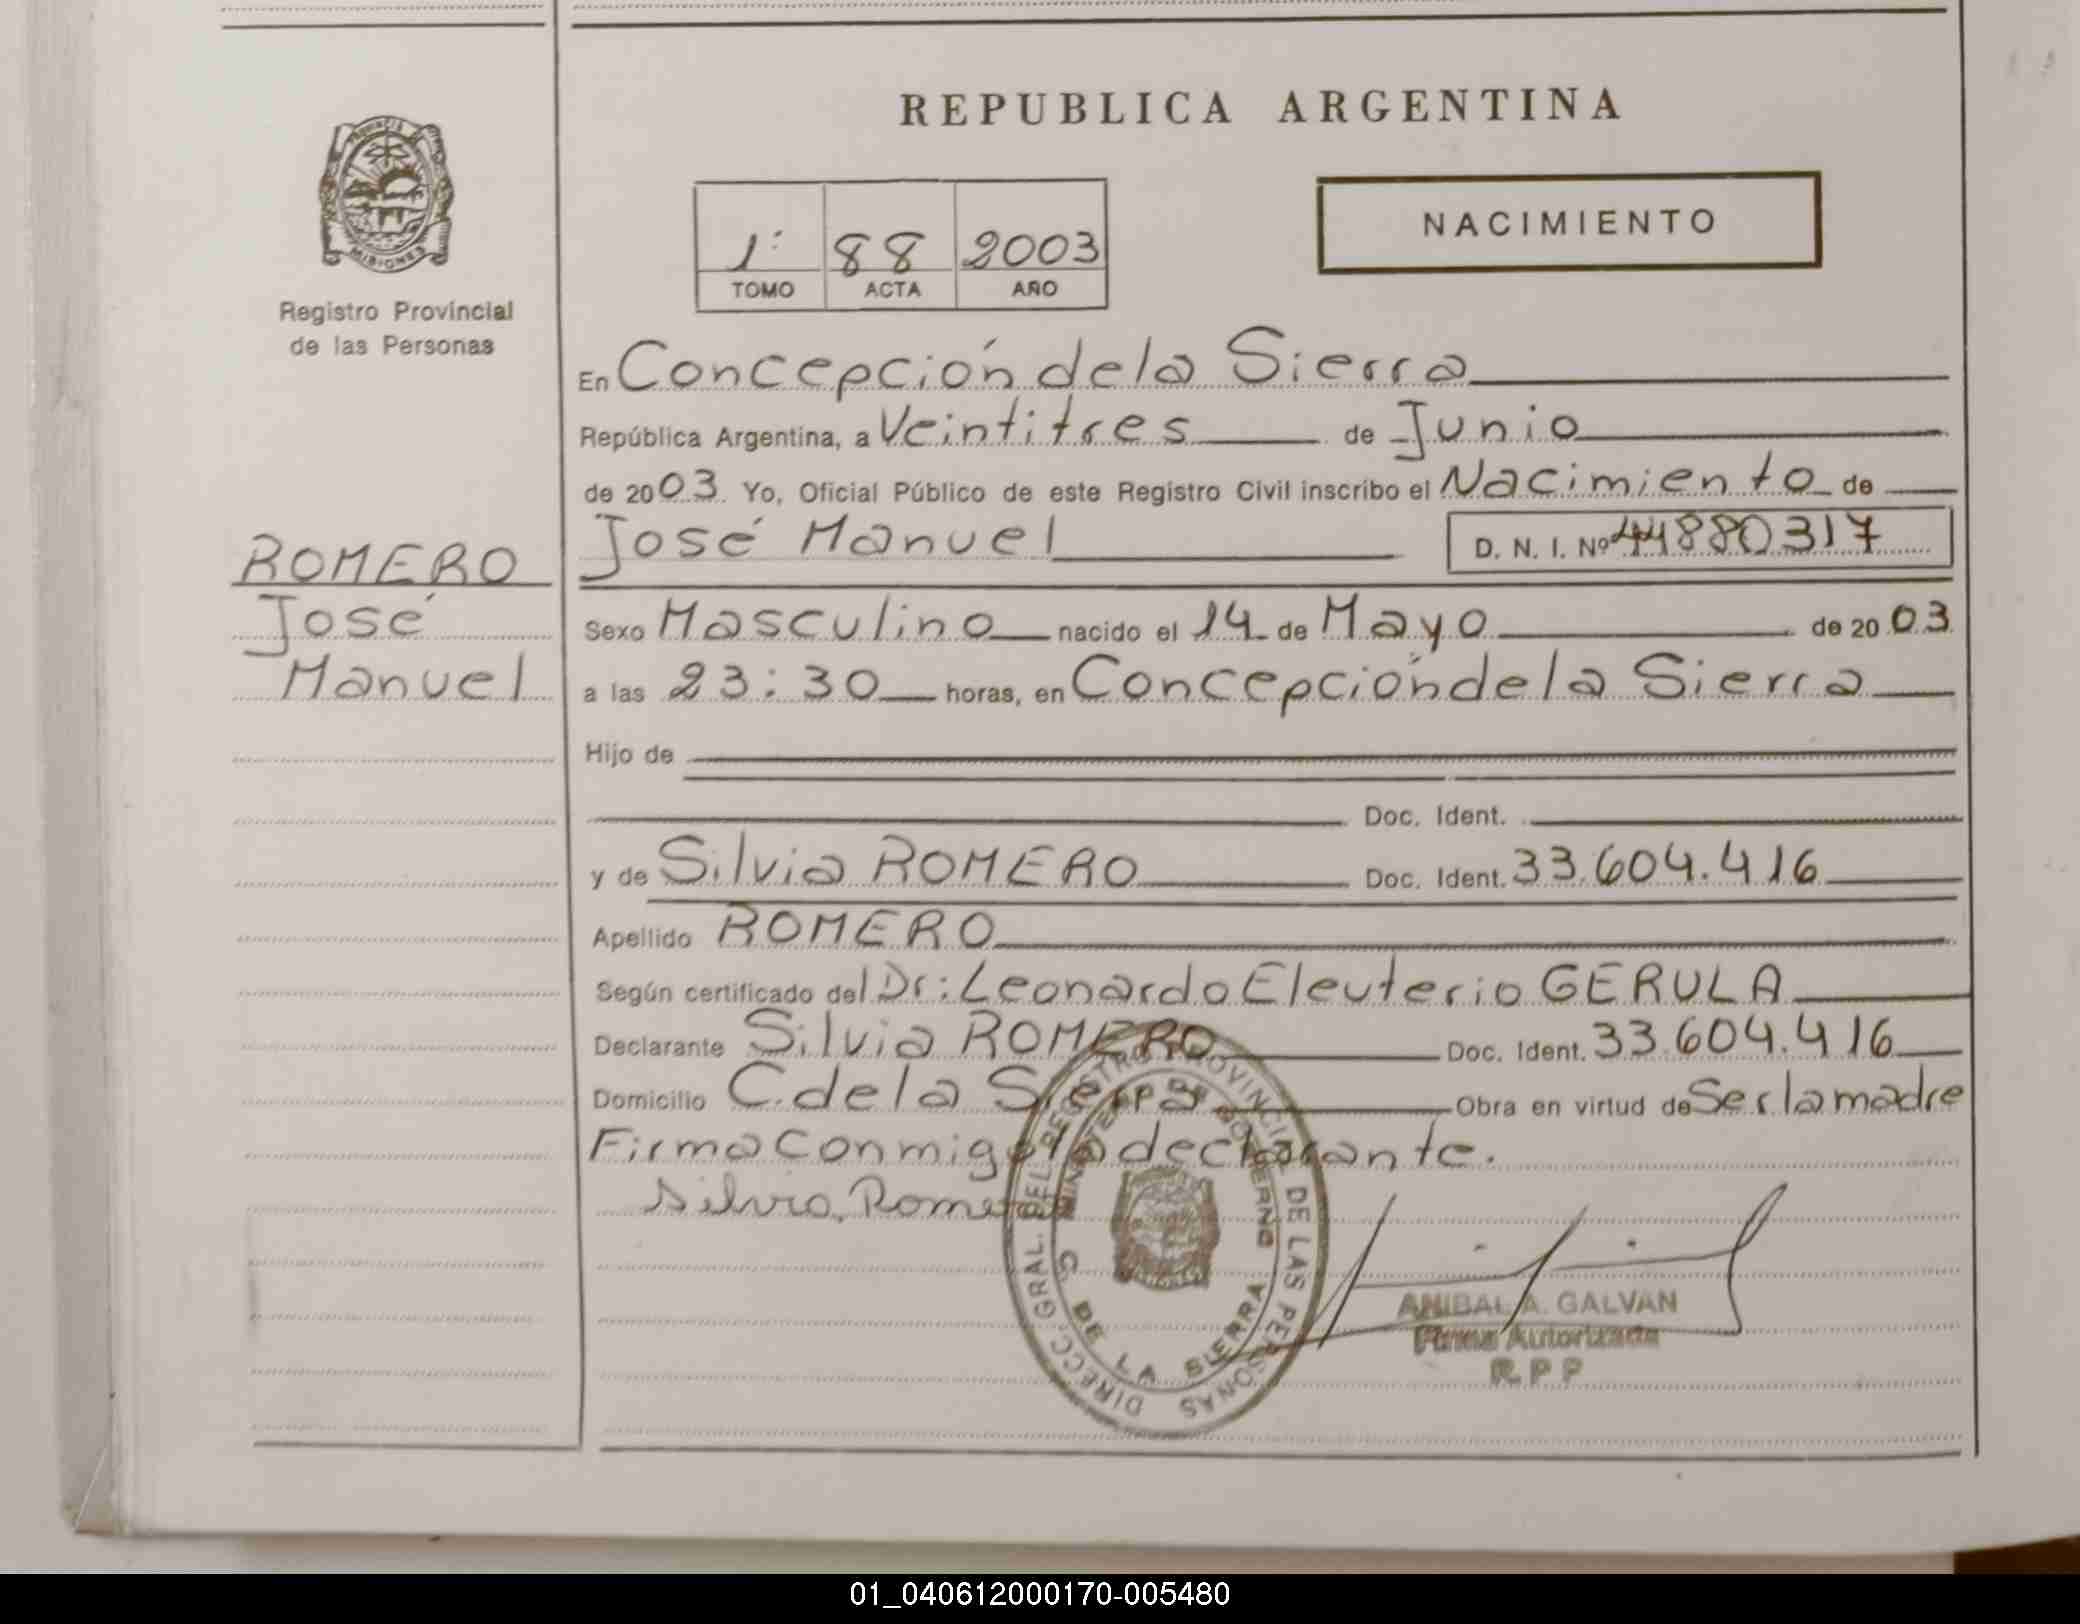 REPUBLICA ARGENTINA
PROVINCIA
MISIONES
Registro Provincial
de las Personas
1º 88 2003
TOMO ACTA AÑO
NACIMIENTO
En Concepción de la Sierra
República Argentina, a Veintitres de Junio
de 2003 Yo, Oficial Público de este Registro Civil inscribo el Nacimiento de
José Manuel D. N. I. Nº 44880317
ROMERO
José
Manuel
Sexo Masculino nacido el 14 de Mayo de 2003
a las 23:30 horas, en Concepción de la Sierra
Hijo de
Doc. Ident.
y de Silvia ROMERO Doc. Ident. 33.604.416
Apellido ROMERO
Según certificado del Dr: Leonardo Eleuterio GERULA
Declarante Silvia ROMERO Doc. Ident. 33.604.416
Domicilio C. de la Sierra Obra en virtud de Ser la madre
Firma conmigo la declarante.
Silvia, Romero
DIRECC. GRAL. DEL REGISTRO PROVINCIAL DE LAS PERSONAS
MINISTERIO DE GOBIERNO
C. DE LA SIERRA
ANIBAL A. GALVAN
Firma Autorizada
R P P
01_040612000170-005480